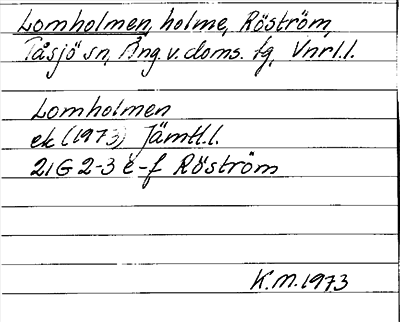 Lomholmen, holme, Röström,
Tåsjö sn, Ång. v. doms. fg, Vnrl.l.
Lomholmen
ek (1973) Jämtl.l.
21G 2-3 e-f Röström
K.M. 1973